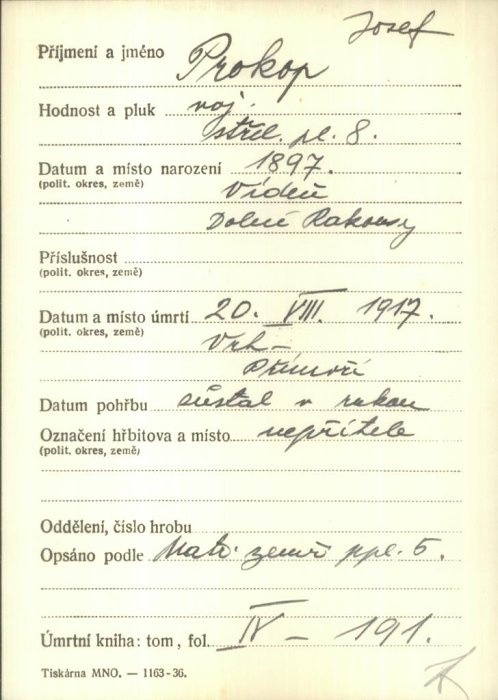 Josef
Příjmení a jméno Prokop
Hodnost a pluk voj.
střel. pl. 8.
Datum a místo narození 1897.
(polit. okres, země) Vídeň
Dolné Rakousy
Příslušnost
(polit. okres, země)
Datum a místo úmrtí 20. VIII. 1917.
(polit. okres, země) Vrh –
Přímoří
Datum pohřbu zůstal v rukou
Označení hřbitova a místo nepřítele
(polit. okres, země)
Oddělení, číslo hrobu
Opsáno podle Matr. zemř. ppl. 5.
Úmrtní kniha: tom, fol. IV – 191.
Tiskárna MNO. — 1163-36.